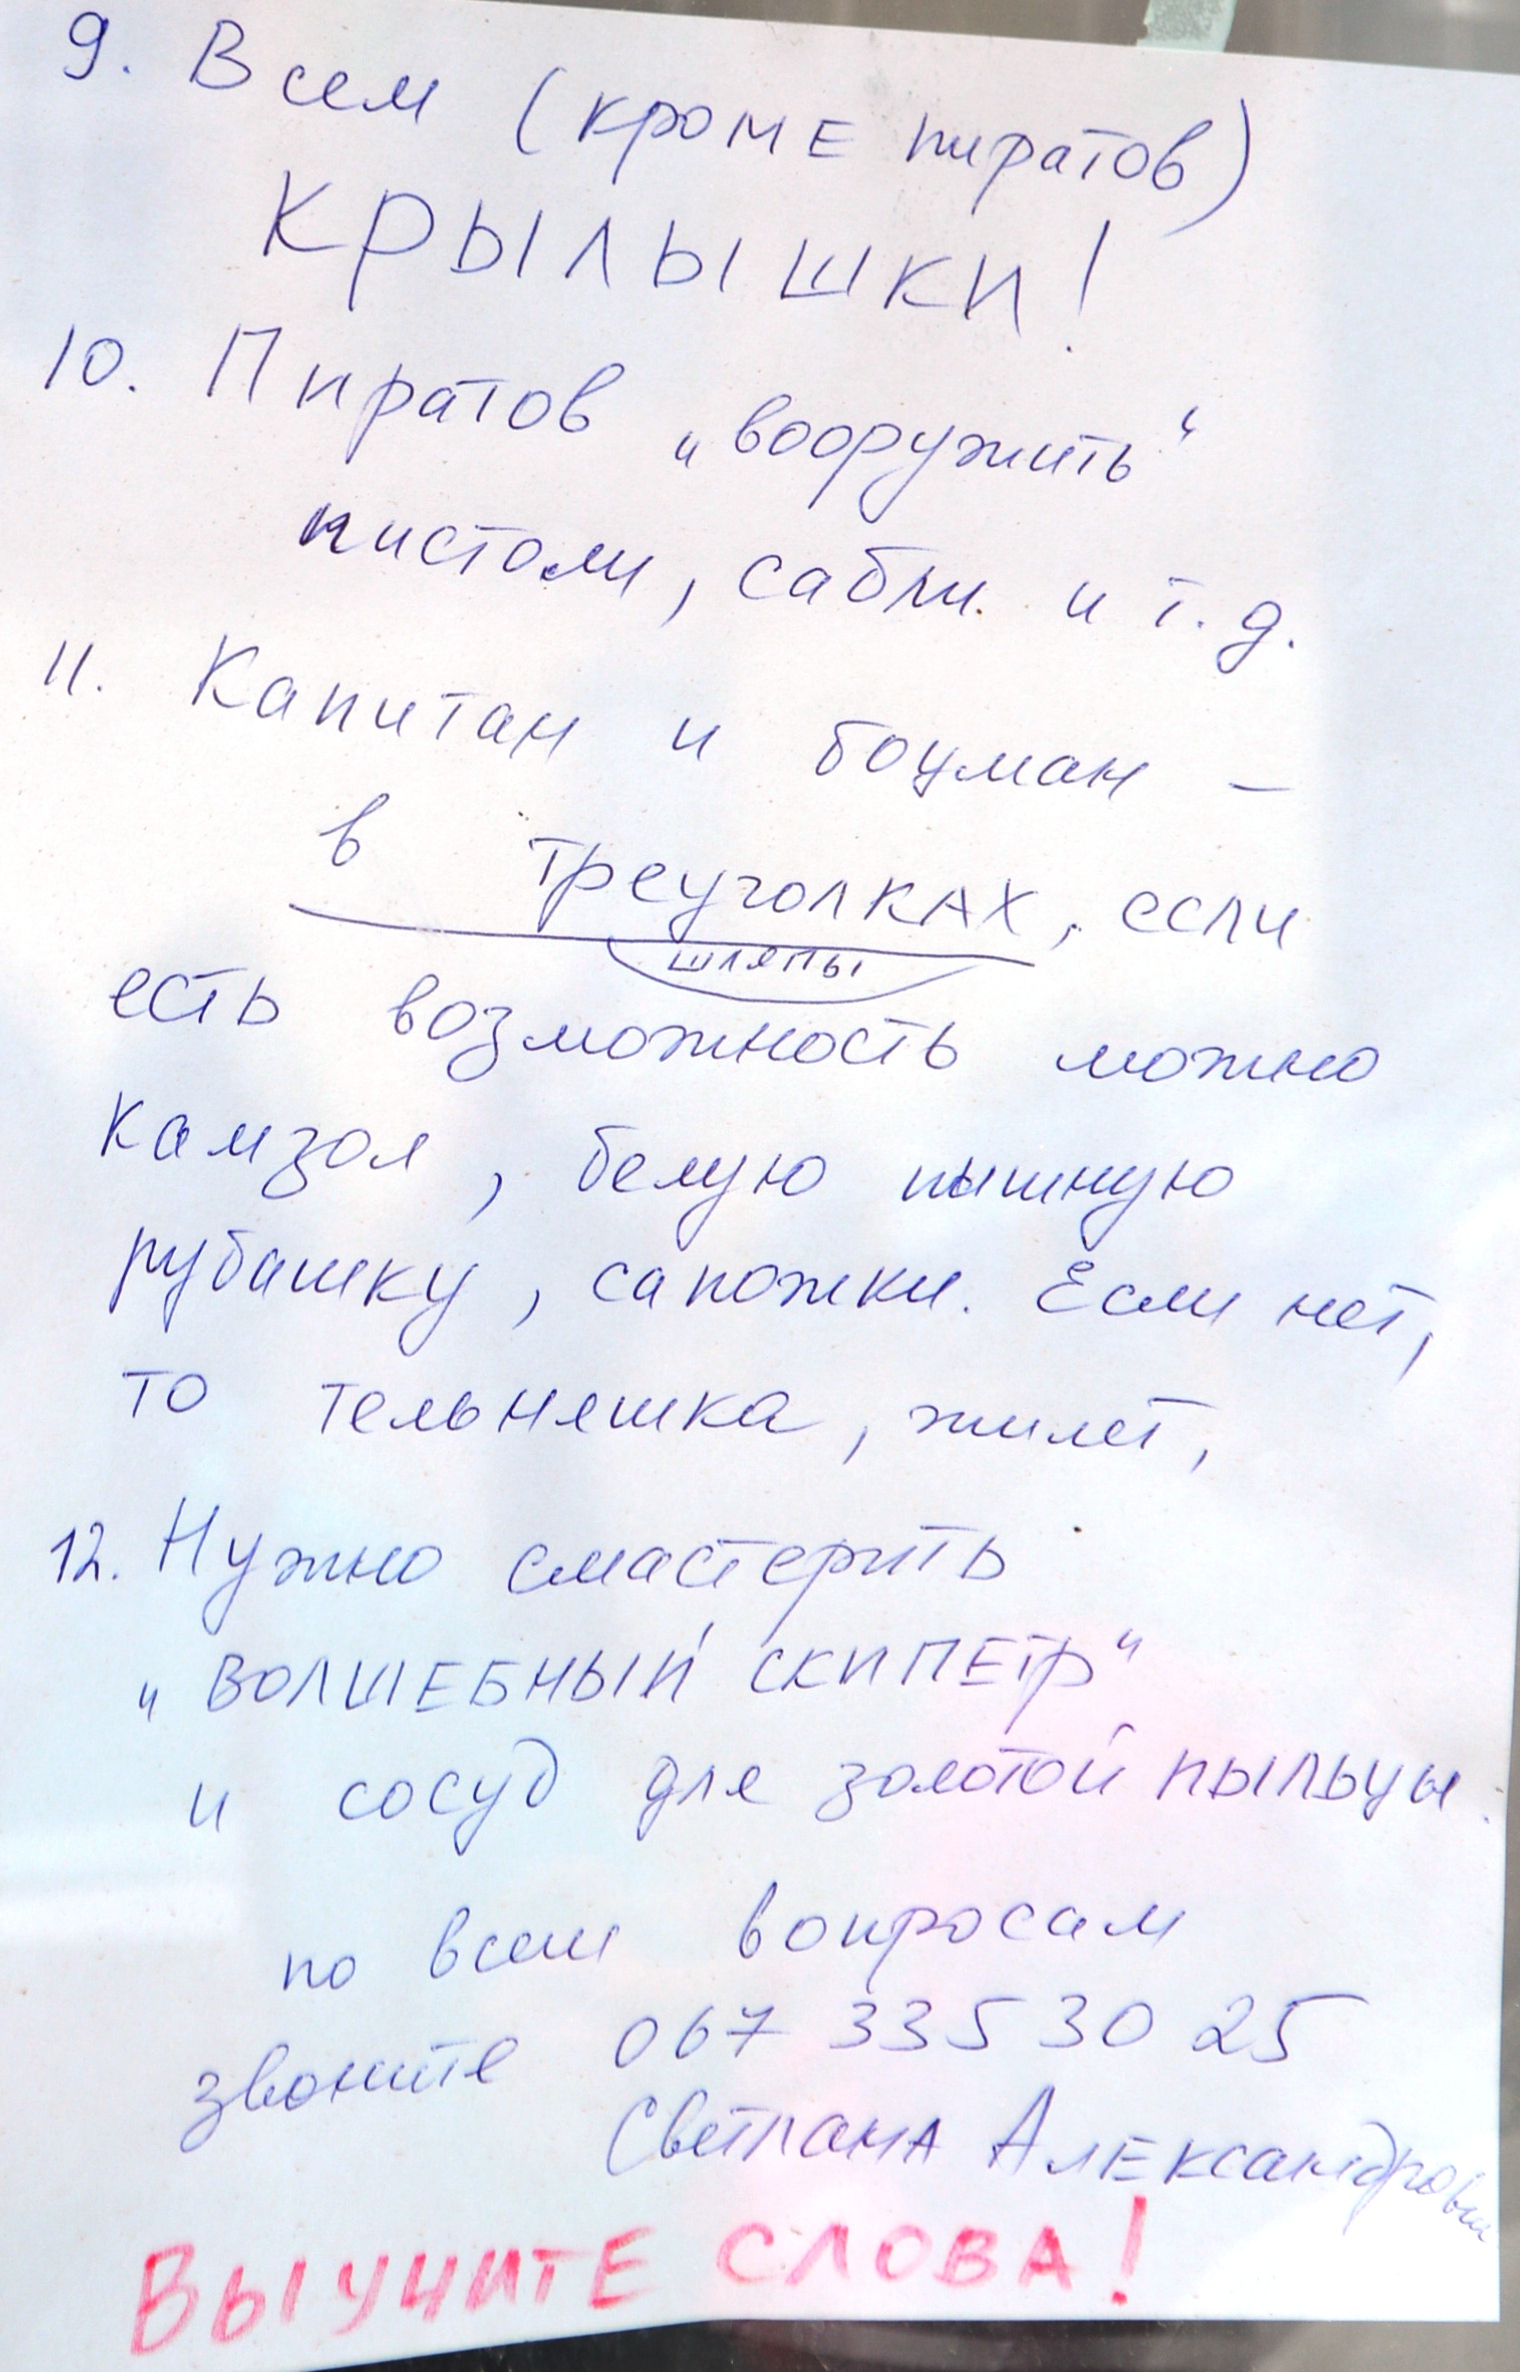 9. Всем (кроме пиратов)
КРЫЛЫШКИ!
10. Пиратов „вооружить“
пистоли, сабли и т.д.
11. Капитан и боцман –
в треуголках, если
шляпы
есть возможность можно
камзол, белую пышную
рубашку, сапожки. Если нет,
то тельняшка, жилет,
12. Нужно смастерить
„ВОЛШЕБНЫЙ СКИПЕТР“
и сосуд для золотой пыльцы.
по всем вопросам
звоните 067 335 30 25
Светлана Александровн
ВЫУЧИТЕ СЛОВА!